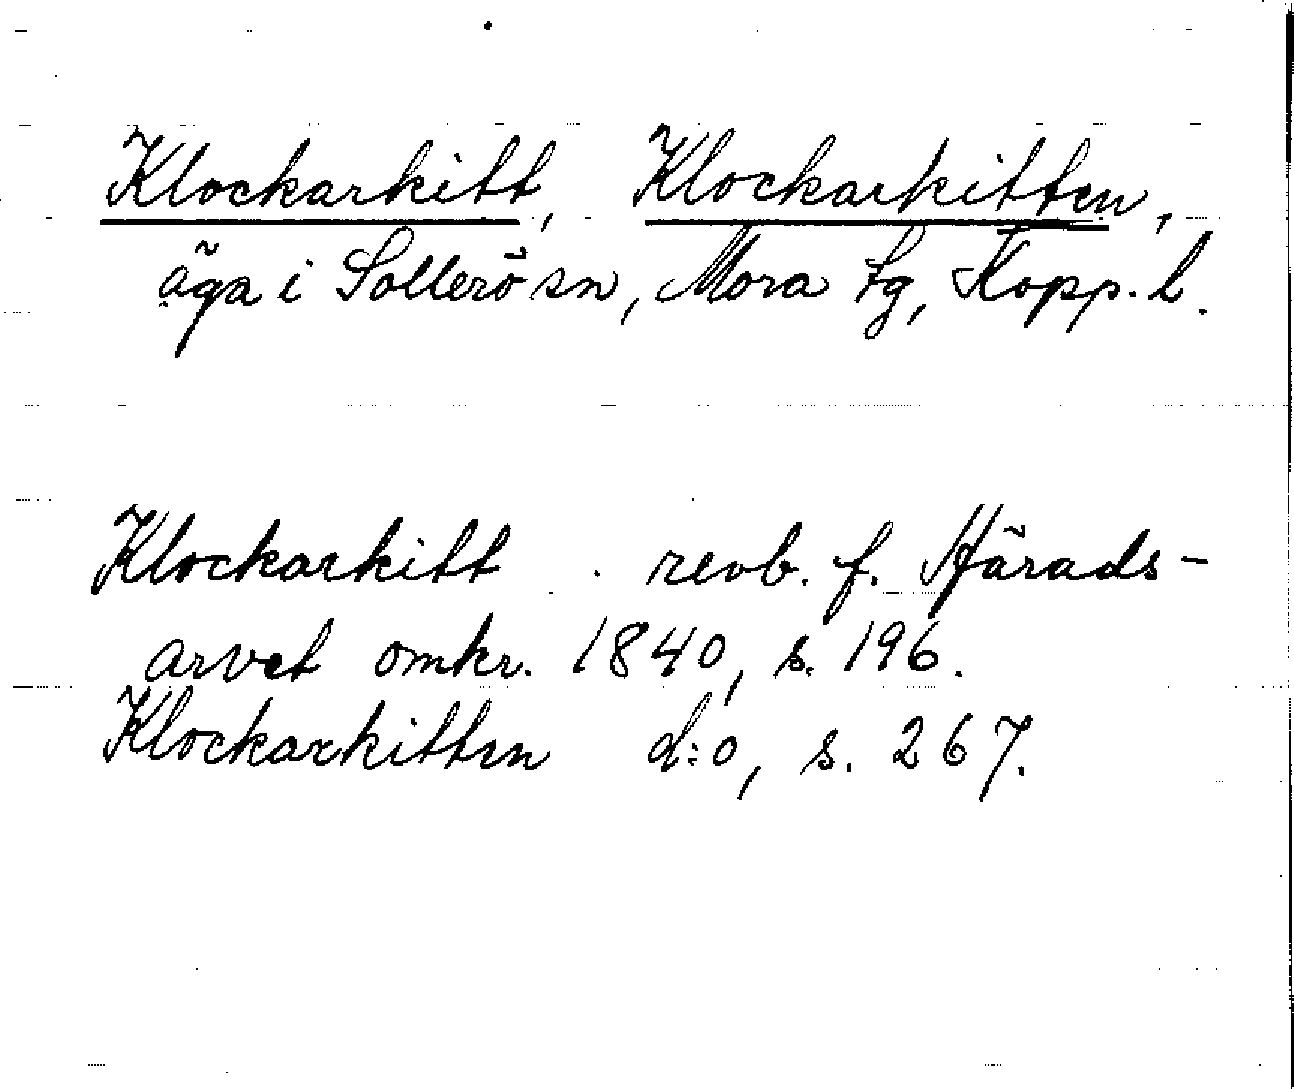 Klockarkitt, Klockarkitten,
äga i Sollerö sn, Mora tg, Kopp. l.
Klockarkitt revb. f. Härads-
arvet omkr. 1840, s. 196.
Klockarkitten d:o, s. 267.